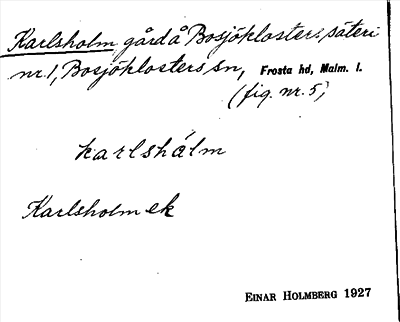 Karlsholm, gård å Bosjöklosters säteri
nr. 1, Bosjöklosters sn, Frosta hd, Malm. l.
(fig. nr. 5)
karlshálm
Karlsholm ek
EINAR HOLMBERG 1927